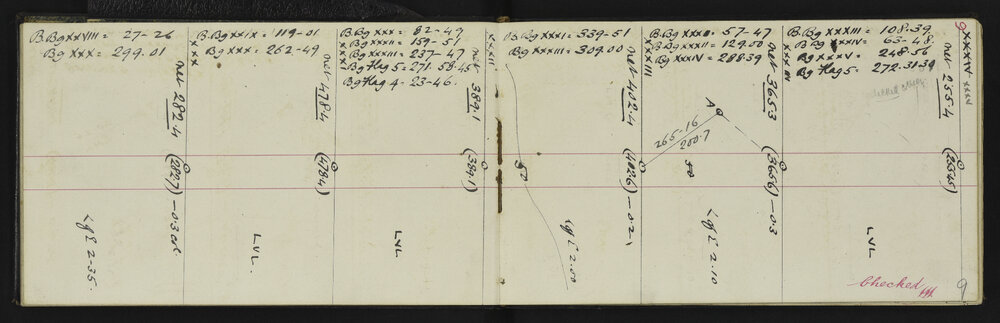 B.Bg XXVIII = 27-26
Bg XXX = 299.01
net 282.4
(2827) - 0.3
Lg E 2-35.
B.Bg XXIX = 119-01
Bg XXX = 262-49
XXX
net 478.4
(4784)
LVL.
B.Bg XXX = 82-49
Bg XXXII = 159-51
Bg XXXIII = 237-47
Bg Flag 5 = 271.58.45"
Bg Flag 4 = 23-46.
net 389.1
(389.1)
LVL
XXXII
B.Bg XXXI = 339-51
Bg XXXIII = 309.00
net 402.4
(402.6) - 0.2
50
Lg E 2.00
XXXIII
B.Bg XXXII = 57-47
B.Bg XXXII = 129.00
Bg XXXIV = 288.39
net 365.3
A
265-16
200.7
50
(365.6) - 0.3
Lg E 2.10
XXXIV
B.Bg XXXIII = 108.39
B Bg XXXIV = 63-41
Bg XXXV = 248.56
Bg Flag 5 = 272.31.39
net 255.4
(2554.5)
LVL
XXXIV
XXXV
9
Checked
9